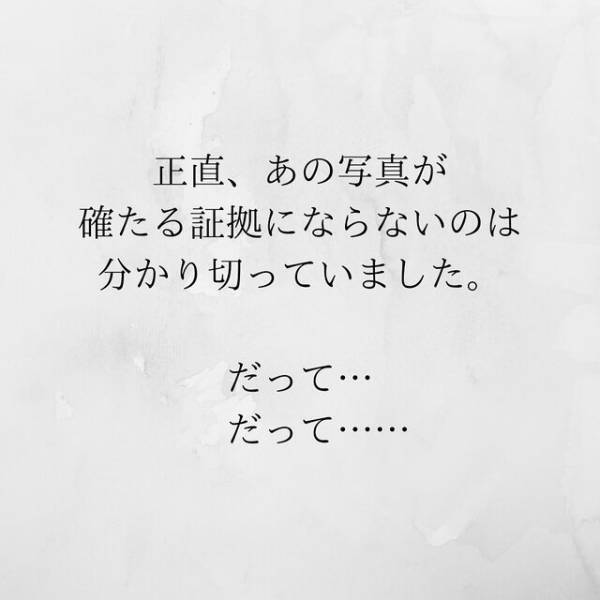 正直、あの写真が
確たる証拠にならないのは
分かり切っていました。
だって…
だって……